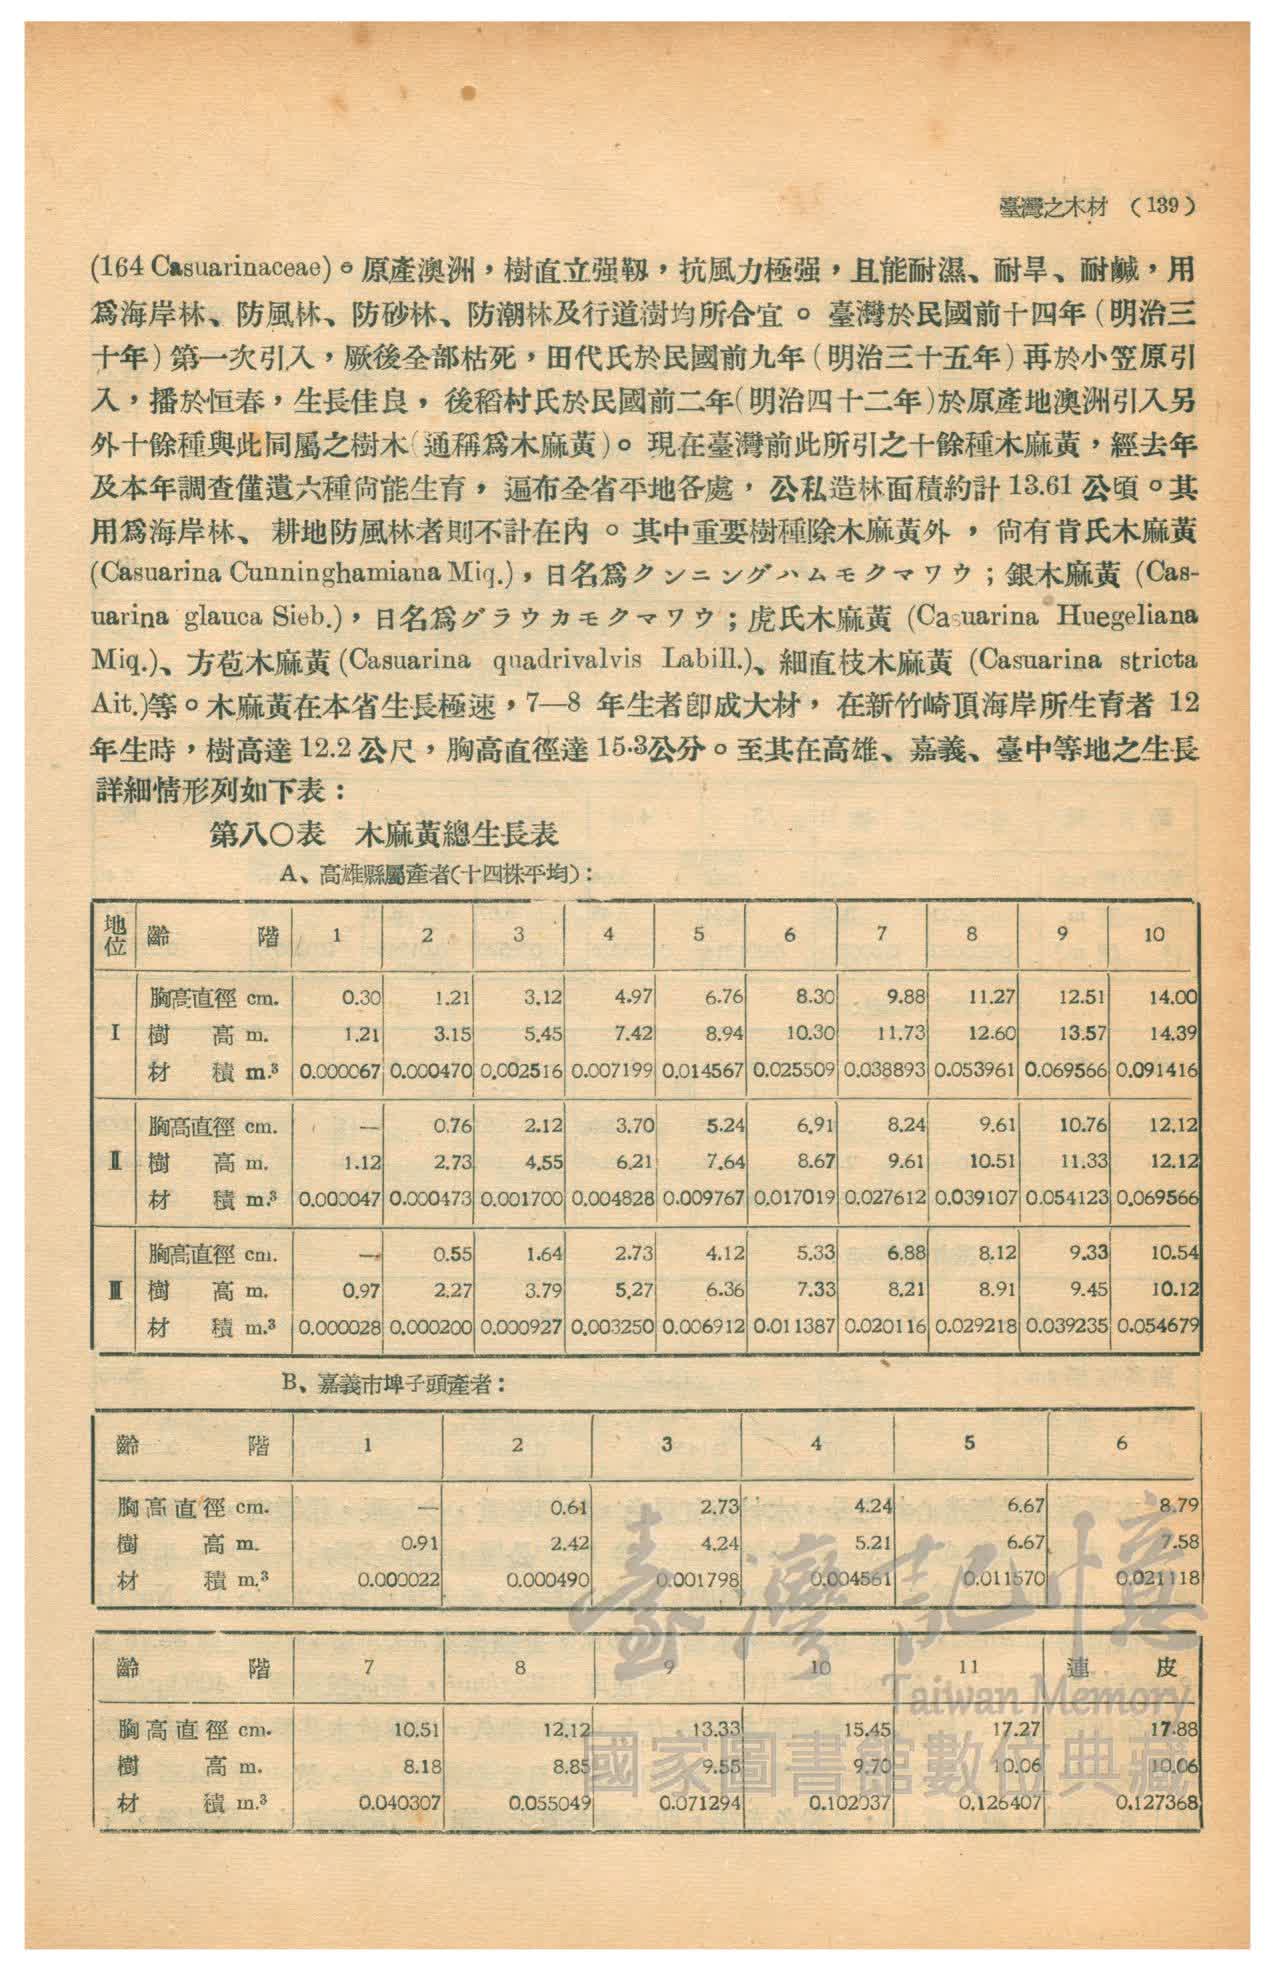 臺灣之木材 (139)
(164 Casuarinaceae)。原產澳洲，樹直立强靱，抗風力極强，且能耐濕、耐旱、耐鹹，用
爲海岸林、防風林、防砂林、防潮林及行道樹均所合宜。臺灣於民國前十四年(明治三
十年)第一次引入，厥後全部枯死，田代氏於民國前九年(明治三十五年)再於小笠原引
入，播於恒春，生長佳良，後稻村氏於民國前二年(明治四十二年)於原產地澳洲引入另
外十餘種與此同屬之樹木(通稱爲木麻黃)。現在臺灣前此所引之十餘種木麻黃，經去年
及本年調查僅遺六種尙能生育，遍布全省平地各處，公私造林面積約計 13.61 公頃。其
用爲海岸林、耕地防風林者則不計在內。其中重要樹種除木麻黃外，尙有肯氏木麻黃
(Casuarina Cunninghamiana Miq.)，日名爲クンニングハムモクマワウ；銀木麻黃 (Cas-
uarina glauca Sieb.)，日名爲グラウカモクマワウ；虎氏木麻黃 (Casuarina Huegeliana
Miq.)、方苞木麻黃 (Casuarina quadrivalvis Labill.)、細直枝木麻黃 (Casuarina stricta
Ait.)等。木麻黃在本省生長極速，7—8 年生者卽成大材，在新竹崎頂海岸所生育者 12
年生時，樹高達 12.2 公尺，胸高直徑達 15.3公分。至其在高雄、嘉義、臺中等地之生長
詳細情形列如下表：
第八〇表 木麻黃總生長表
A、高雄縣屬產者(十四株平均)：
地位 齡階 1 2 3 4 5 6 7 8 9 10
胸高直徑 cm. 0.30 1.21 3.12 4.97 6.76 8.30 9.88 11.27 12.51 14.00
I 樹高 m. 1.21 3.15 5.45 7.42 8.94 10.30 11.73 12.60 13.57 14.39
材積 m.³ 0.000067 0.000470 0.002516 0.007199 0.014567 0.025509 0.038893 0.053961 0.069566 0.091416
胸高直徑 cm. — 0.76 2.12 3.70 5.24 6.91 8.24 9.61 10.76 12.12
II 樹高 m. 1.12 2.73 4.55 6.21 7.64 8.67 9.61 10.51 11.33 12.12
材積 m.³ 0.000047 0.000473 0.001700 0.004828 0.009767 0.017019 0.027612 0.039107 0.054123 0.069566
胸高直徑 cm. — 0.55 1.64 2.73 4.12 5.33 6.88 8.12 9.33 10.54
III 樹高 m. 0.97 2.27 3.79 5.27 6.36 7.33 8.21 8.91 9.45 10.12
材積 m.³ 0.000028 0.000200 0.000927 0.003250 0.006912 0.011387 0.020116 0.029218 0.039235 0.054679
B、嘉義市埤子頭產者：
齡階 1 2 3 4 5 6
胸高直徑 cm. — 0.61 2.73 4.24 6.67 8.79
樹高 m. 0.91 2.42 4.24 5.21 6.67 7.58
材積 m.³ 0.000022 0.000490 0.001798 0.004561 0.011570 0.021118
齡階 7 8 9 10 11 連皮
胸高直徑 cm. 10.51 12.12 13.33 15.45 17.27 17.88
樹高 m. 8.18 8.85 9.55 9.70 10.06 10.06
材積 m.³ 0.040307 0.055049 0.071294 0.102037 0.126407 0.127368
臺灣記憶
Taiwan Memory
國家圖書館數位典藏